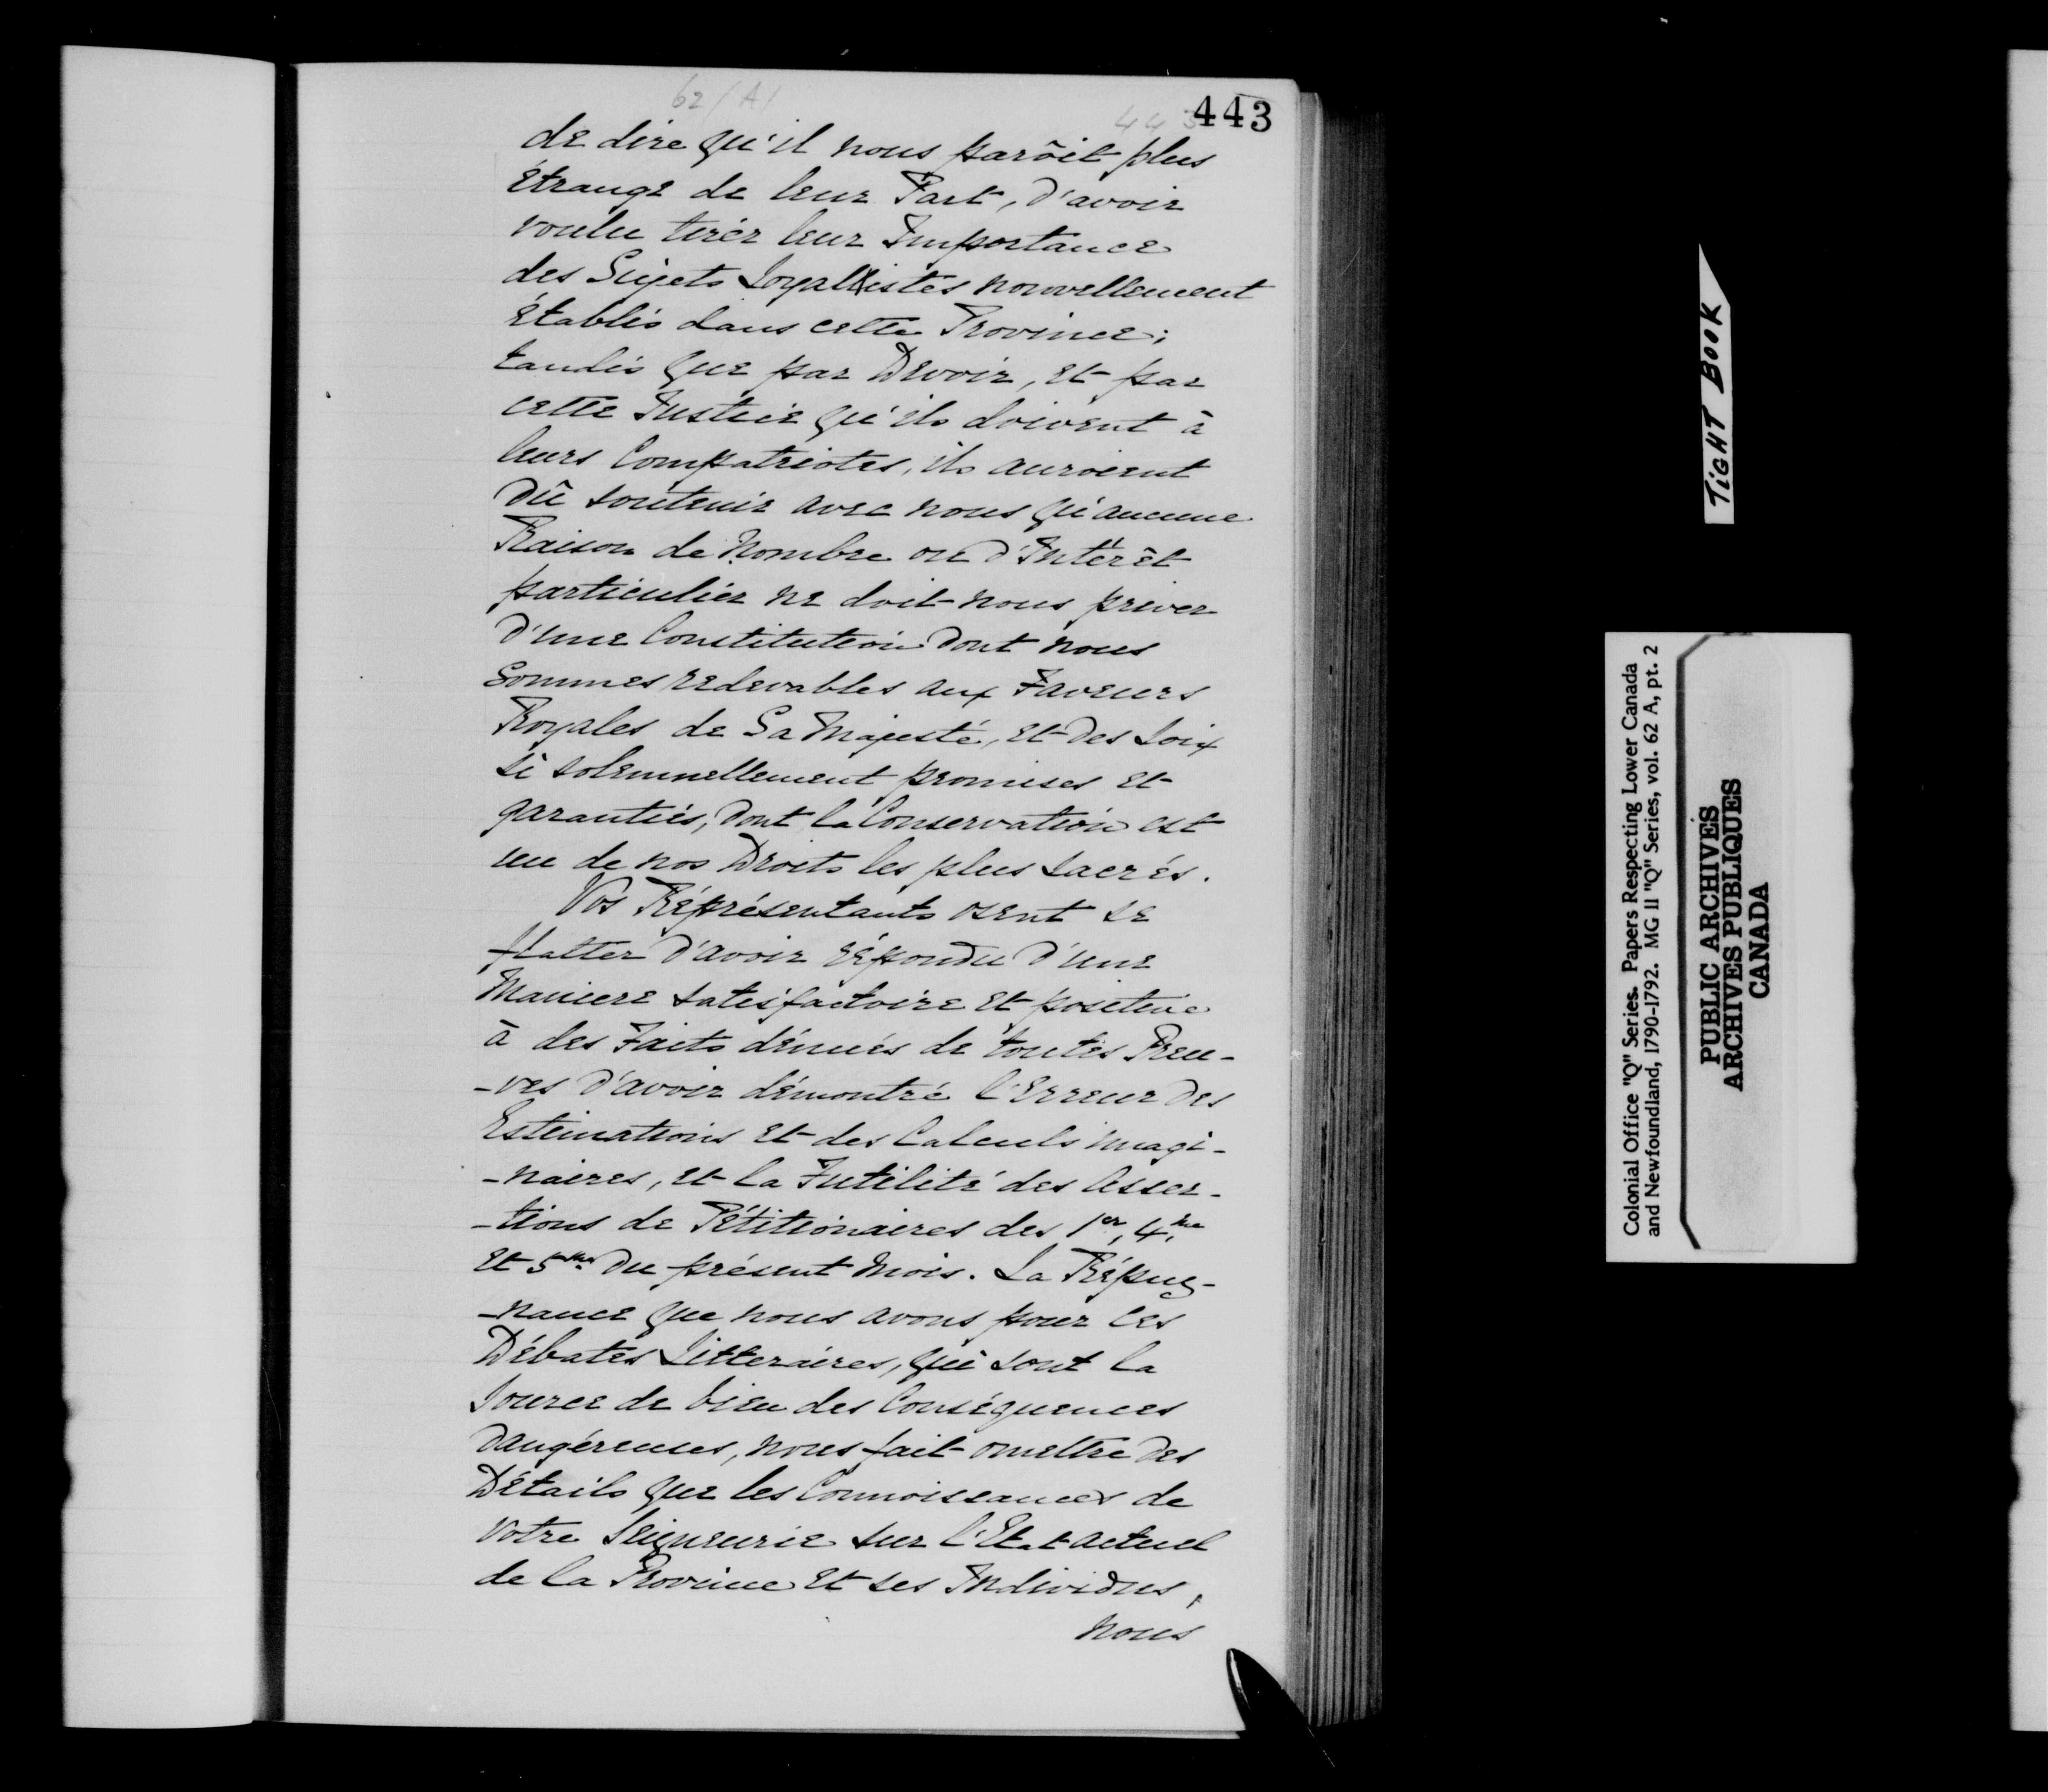 62/A/
443
443
de dire qu'il nous parôit plus
étrange de leur Part, d'avoir
voulu tirér leur Importance
des Sujets Loyallistes nouvellement
établis dans cette Province;
tandis que par Devoir, et par
cette Justice qu'ils doivent à
leurs Compatriotes, ils auroient
dû soutenir avec nous qu'aucune
Raison de Nombre ou d'Intérêt
particuliér ne doit nous priver
d'une Constitution dont nous
sommes redevables aux Faveurs
Royales de Sa Majesté, et des Loix
si solemnellement promises et
garanties, dont la Conservation est
un de nos Droits les plus sacrés.
Vos Réprésentants osent se
flatter d'avoir répondu d'une
Maniere satisfactoire et positive
à des Faits dénués de toutes Preu-
-ves d'avoir démontré l'Erreur des
Estimations et des Calculs imagi-
-naires, et la Futilité des Asser-
-tions de Pétitionaires des 1er, 4me
et 5me du présent Mois. La Répug-
-nance que nous avons pour ces
Débates Litteraires, qui sont la
Source de bien des Conséquences
dangéreuses, nous fait omettre des
Détails que les Connoissances de
Votre Seigneurie sur l'Etat actuel
de la Province et ses Individus,
nous
TIGHT BOOK
Colonial Office "Q" Series. Papers Respecting Lower Canada
and Newfoundland, 1790-1792. MG 11 "Q" Series, vol. 62 A, pt. 2
PUBLIC ARCHIVES
ARCHIVES PUBLIQUES
CANADA